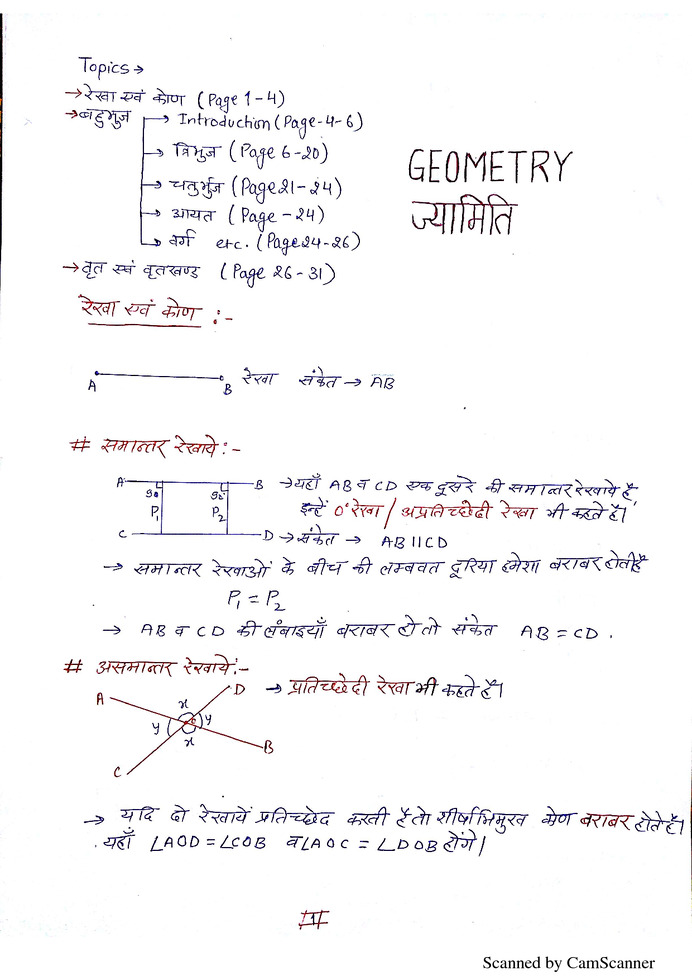 Topics →
→ रेखा एवं कोण (Page 1-4)
→ बहुभुज → Introduction (Page-4-6)
→ त्रिभुज (Page 6-20)
→ चतुर्भुज (Page 21-24)
→ आयत (Page -24)
→ वर्ग etc. (Page 24-26)
→ वृत एवं वृतखण्ड (Page 26-31)
GEOMETRY
ज्यामिति
रेखा एवं कोण :-
A B रेखा संकेत → AB
# समान्तर रेखाये :-
A B → यहाँ AB व CD एक दूसरे की समान्तर रेखाये है,
90 90
P₁ P₂ इन्हें 0° रेखा / अप्रतिच्छेदी रेखा भी कहते है।
C D → संकेत → AB || CD
→ समान्तर रेखाओं के बीच की लम्बवत दूरिया हमेशा बराबर होती है
P₁ = P₂
→ AB व CD की लंबाइयाँ बराबर हो तो संकेत AB = CD .
# असमान्तर रेखाये :-
A D → प्रतिच्छेदी रेखा भी कहते है।
x
y y
x
B
C
→ यदि दो रेखायें प्रतिच्छेद करती है तो शीर्षाभिमुख कोण बराबर होते है।
यहाँ ∠AOD = ∠COB व ∠AOC = ∠DOB होंगे।
1
Scanned by CamScanner